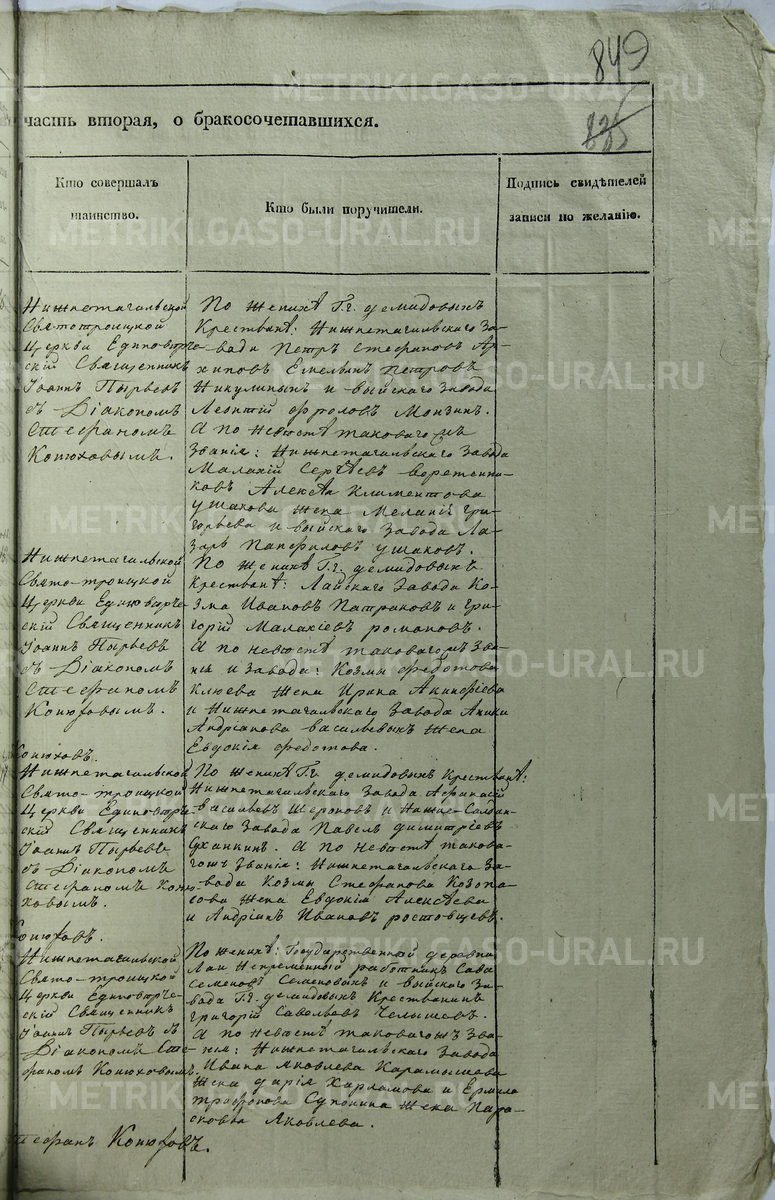 849
835
часть вторая, о бракосочетавшихся.
Кто совершалъ
таинство.
Кто были поручители.
Подпись свидѣтелей
записи по желанію.
Нижнетагильской
Святотроицкой
Церкви Единовѣрче-
скій Священникъ
Іоаннъ Пырьевъ
съ Діакономъ
Стефаномъ
Конюховымъ.
По женихѣ Г.г. Демидовыхъ
Крестьяне: Нижнетагильскаго за-
вода Петръ Стефановъ Ар-
хиповъ Емельянъ Петровъ
Никулинъ и выйскаго завода
Леонтій Фроловъ Монзинъ.
А по невѣстѣ таковагожъ
званія: Нижнетагильскаго Завода
Малахій Сергѣевъ Веретенни-
ковъ Алексѣя Климентова
Ушакова жена Меланія Гри-
горьева и выйскаго Завода Ла-
зарь Панфиловъ Ушаковъ.
Нижнетагильской
Свято-троицкой
Церкви Единовѣрче-
скій Священникъ
Іоаннъ Пырьевъ
съ Діакономъ
Стефаномъ
Конюховымъ.
По женихѣ Г.г. Демидовыхъ
Крестьяне: Лайскаго Завода Ко-
зма Ивановъ Патраковъ и Гри-
горій Малахіевъ Романовъ.
А по невѣстѣ таковагожъ зва-
нія и завода: Козмы Федотова
Клюева жена Ирина Акинфіева
и Нижнетагильскаго Завода Аники
Андріанова Васильевыхъ жена
Евдокія Федотова.
Конюховъ.
Нижнетагильской
Свято-троицкой
Церкви Единовѣрче-
скій Священникъ
Іоаннъ Пырьевъ
съ Діакономъ
Стефаномъ Коню-
ховымъ.
По женихѣ Г.г. Демидовыхъ Крестьяне:
Нижнетагильскаго Завода Афанасій
Васильевъ Шероновъ и Нижне-Салдин-
скаго Завода Павелъ Димитріевъ
Суханкинъ. А по невѣстѣ такова-
гожъ званія: Нижнетагильскаго За-
вода Козмы Стефанова Козопа-
сова жена Евдокія Алексѣева
и Андріанъ Ивановъ Ростовцевъ.
Конюховъ.
Нижнетагильской
Свято-троицкой
Церкви Единовѣрче-
скій Священникъ
Іоаннъ Пырьевъ съ
Діакономъ Сте-
фаномъ Конюховымъ.
По женихѣ: Государственной деревни
Лаи Непременный работникъ Сава
Семеновъ Семеновыхъ и выйскаго За-
вода Г.г. Демидовыхъ Крестьянинъ
Григорій Савельевъ Челышевъ.
А по невѣстѣ таковагожъ зва-
нія: Нижнетагильскаго Завода
Ивана Яковлева Карамышева
жена Дарія Харламова и Ермила
Трифонова Супонина жена Пара-
сковья Яковлева.
Стефанъ Конюховъ.
METRIKI.GASO-URAL.RU